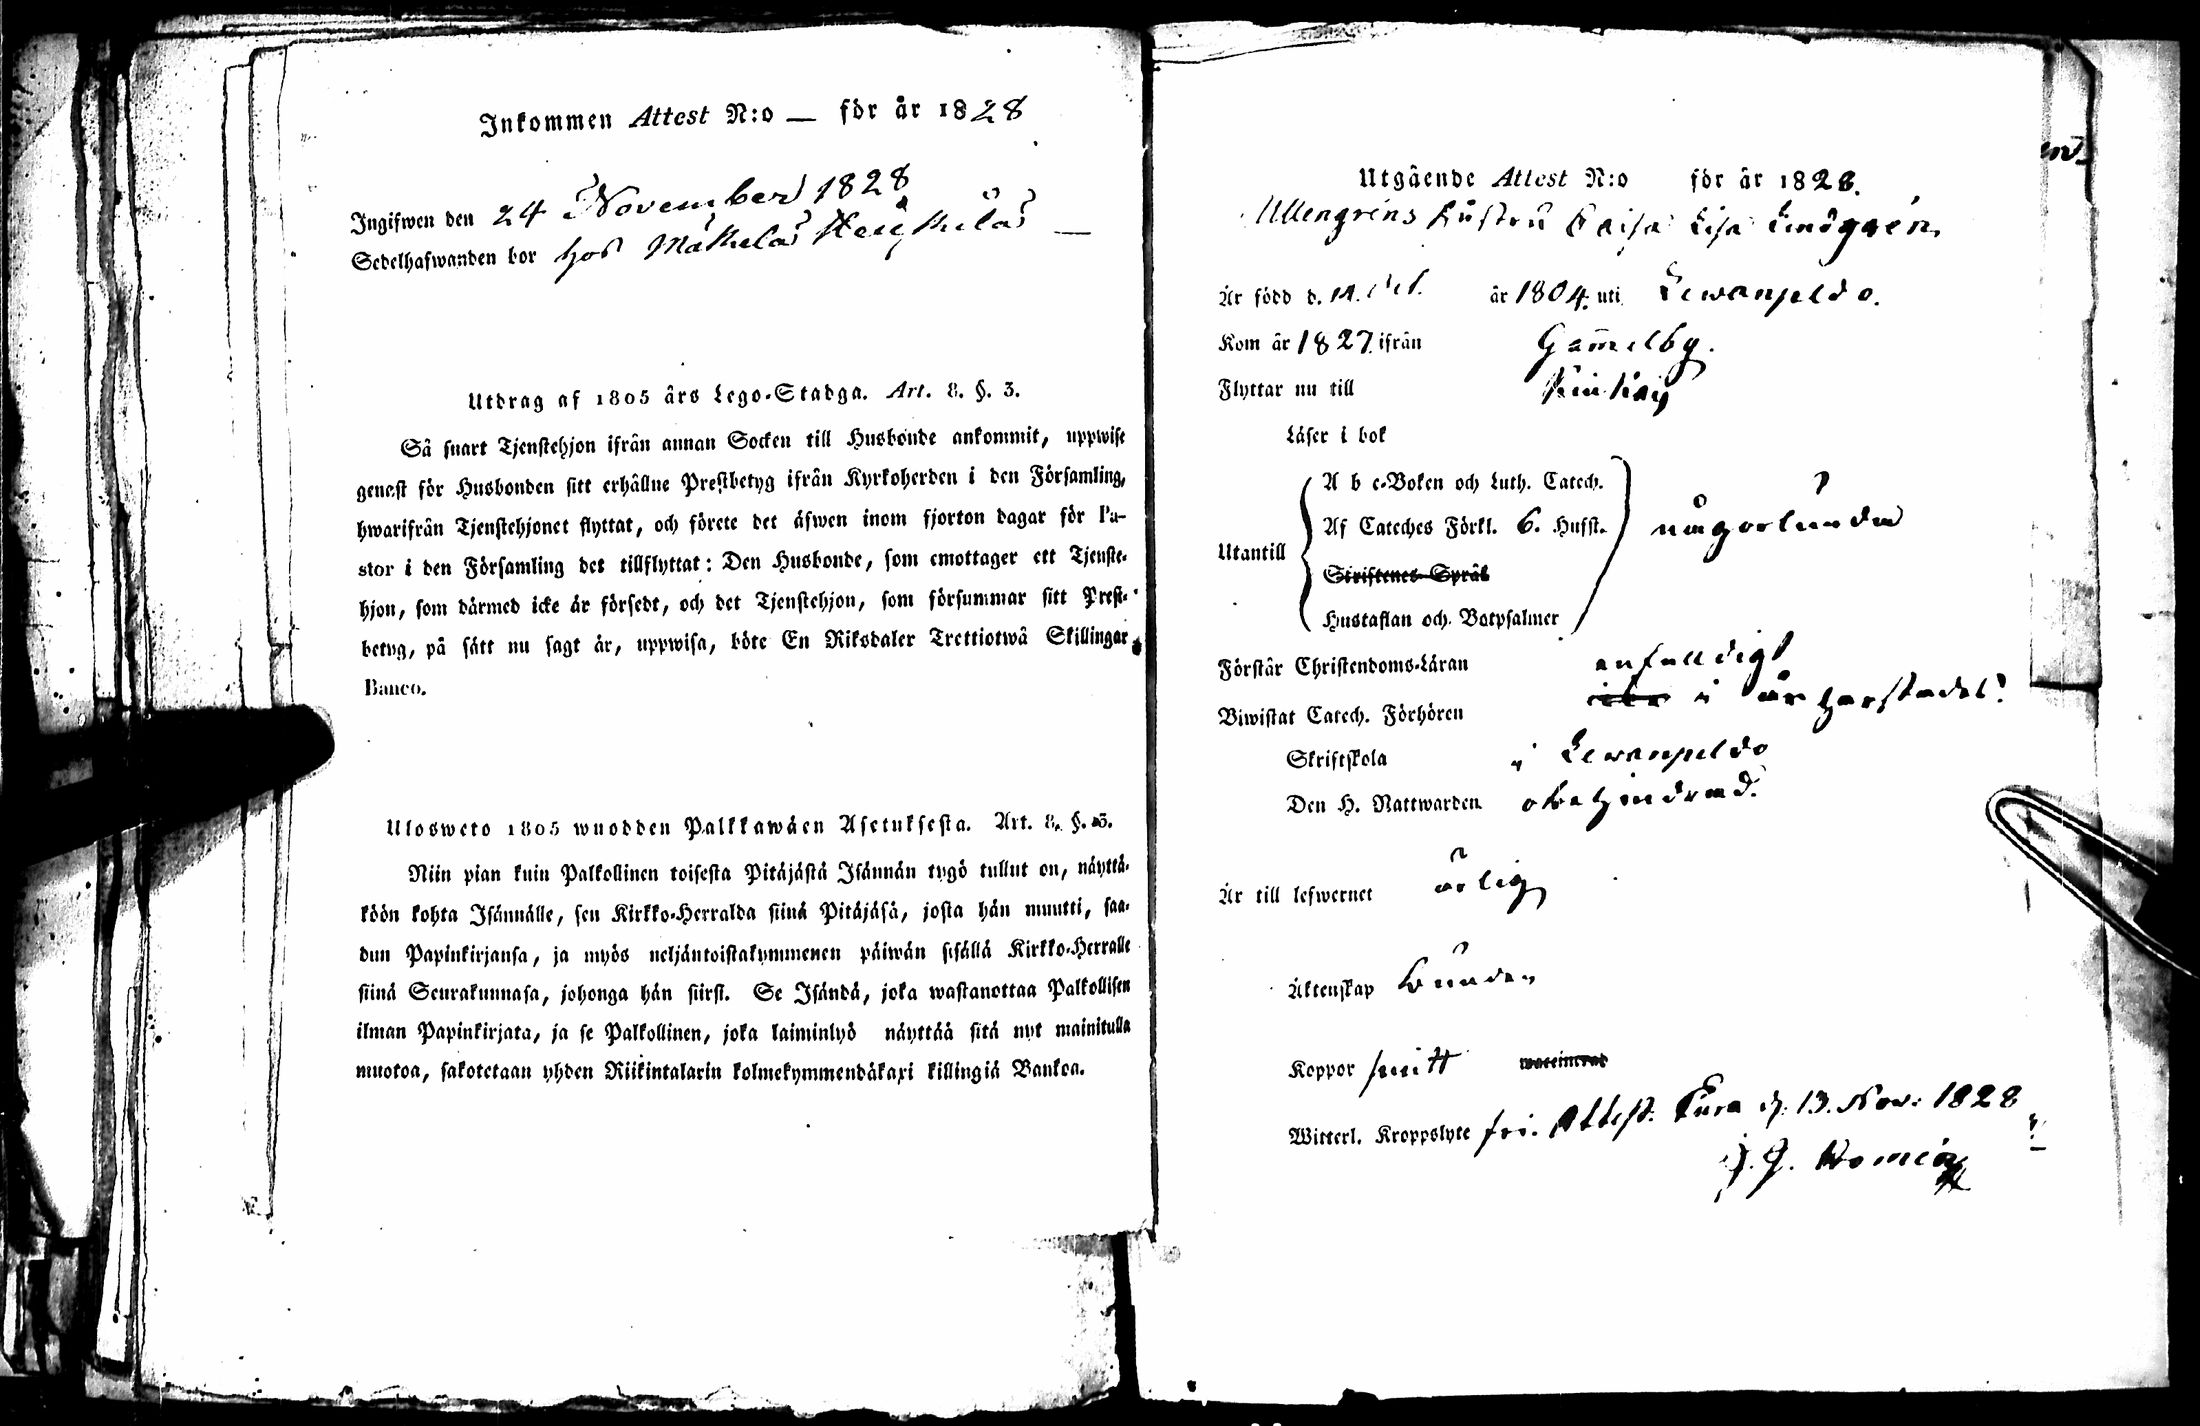 Inkommen Attest N:o — för år 1828
Ingifwen den 24 November 1828
Sedelhafwanden bor hos Mäkelas
Utdrag af 1805 års Lego-Stadga. Art. 8. §. 3.
Så snart Tjenstehjon ifrån annan Socken till Husbonde ankommit, uppwise
genast för Husbonden sitt erhållne Prestbetyg ifrån Kyrkoherden i den Församling,
hwarifrån Tjenstehjonet flyttat, och förete det äfwen inom fjorton dagar för Pa-
stor i den Församling det tillflyttat: Den Husbonde, som emottager ett Tjenste-
hjon, som därmed icke är försedt, och det Tjenstehjon, som försummar sitt Prest-
betyg, på sätt nu sagt är, uppwisa, böte En Riksdaler Trettiotwå Skillingar
Banco.
Ulosweto 1805 wuodden Palkkawäen Asetuksesta. Art. 8. §. 3.
Niin pian kuin Palkollinen toisesta Pitäjästä Isännän tygö tullut on, näyttä-
köön kohta Isännälle, sen Kirkko-Herralda siinä Pitäjäsä, josta hän muutti, saa-
dun Papinkirjansa, ja myös neljäntoistakymmenen päiwän sisällä Kirkko-Herralle
siinä Seurakunnasa, johonga hän siirst. Se Isändä, joka wastanottaa Palkollisen
ilman Papinkirjata, ja se Palkollinen, joka laiminlyö näyttää sitä nyt mainitulla
muotoa, sakotetaan yhden Riikintalarin kolmekymmendäkaxi killingiä Bankoa.
Utgående Attest N:o för år 1828.
Ullengréns hustru Caisa Lisa Lindgrén
År född d. 14. Oct. år 1804. uti Lewanpeldo.
Kom år 1827. ifrån Gam̄elby.
Flyttar nu till
Läser i bok
A b c-Boken och Luth. Catech.
Af Cateches Förkl. 6. Hufst.
Utantill någorlunda
Skriftenes Språk
Hustaflan och Botpsalmer
Förstår Christendoms-Läran enfalldigt
Biwistat Catech. Förhören i
Skriftskola i Lewanpeldo
Den H. Nattwarden obehindrad.
Är till lefwernet ärlig
Äktenskap bunden
Koppor haft waccinerad
Witterl. Kroppslyte fri. Attest. Eura d. 13. Nov: 1828
J. G.